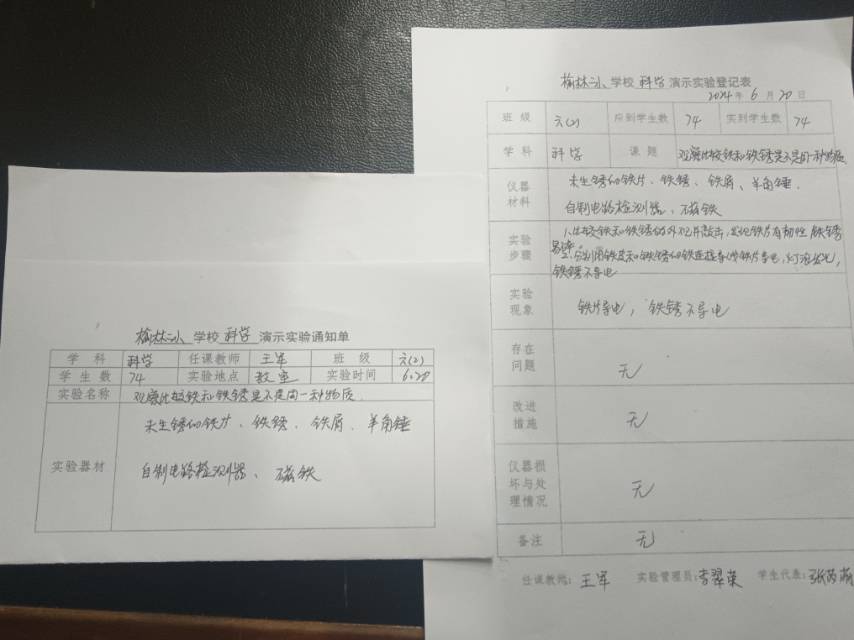 榆林三小 学校 科学 演示实验通知单
学科 科学 任课教师 王军 班级 六(2)
学生数 74 实验地点 教室 实验时间 6.20
实验名称 观察比较铁和铁锈是不是同一种物质.
实验器材 未生锈的铁片、铁锈、铁屑、羊角锤
自制电路检测器、磁铁
学校 科学 演示实验登记表
2024年 6月 20日
班级 六(2) 应到学生数 74 实到学生数 74
学科 科学 课题 观察比较铁和铁锈是不是同一种物质
仪器材料 未生锈的铁片、铁锈、铁屑、羊角锤.
自制电路检测器、磁铁
实验步骤 1.比较铁和铁锈的外观并敲击,发现铁片有韧性 铁锈
易碎。
铁锈不导电
实验现象 铁片导电,铁锈不导电
存在问题 无
改进措施 无
仪器损坏与处理情况 无
备注 无
任课教师:王军 实验管理员:李翠荣 学生代表:张